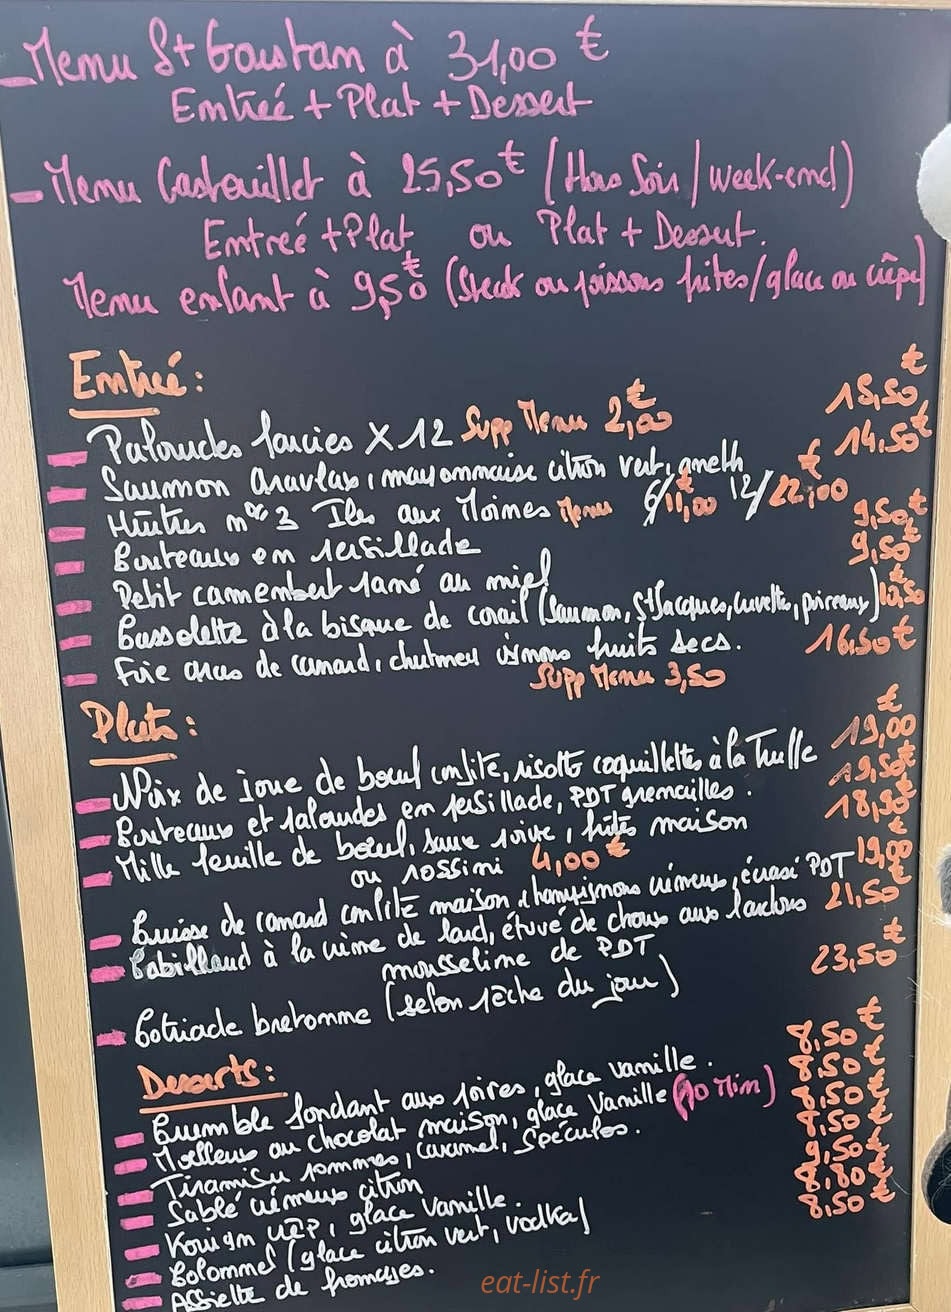 - Menu St Goustan à 31,00 €
Entreé + Plat + Dessert
- Menu Castouillet à 25,50 € (Hors Soir / week-end)
Entreé + Plat ou Plat + Dessert.
Menu enfant à 9,50 € (Steak ou poissons frites / glace ou crêpe)
Entreé :
- Palourdes farcies X 12 Supp Menu 2,00 € 15,50 €
- Saumon Gravlax, mayonnaise citron vert, aneth 14,50 €
- Huîtres n° 3 Iles aux Moines Menu 6/11,00 € 12/22,00 €
- Bulots en persillade 9,50 €
- Petit camembert pané au miel 9,50 €
- Cassolette à la bisque de corail (Saumon, St Jacques, crevettes, poireaux) 12,50 €
- Foie gras de canard, chutney oignons fruits secs. 16,50 €
Supp Menu 3,50
Plats :
- Noix de joue de bœuf confite, risotto coquillettes à la Truffe 19,00 €
- et palourdes en persillade, PDT grenailles. 19,50 €
- Mille feuille de bœuf, sauce poivre, frites maison 18,50 €
ou rossini 4,00 €
- Cuisse de canard confite maison champignons crémeux, écrasé PDT 19,00 €
- Cabillaud à la crème de lard, étuvé de choux aux lardons 21,50 €
mousseline de PDT
- Cotriade bretonne (selon pêche du jour) 23,50 €
Desserts :
- Crumble fondant aux poires, glace vanille. 8,50 €
- Moelleux au chocolat maison, glace Vanille (10 Min) 8,50 €
- Tiramisu pommes, caramel, Spéculos. 8,50 €
- Sablé crémeux citron 8,50 €
- Kouign crêp, glace Vanille. 9,50 €
- Colonnel (glace citron vert, vodka) 8,80 €
- Assiette de fromages. 8,50 €
eat-list.fr